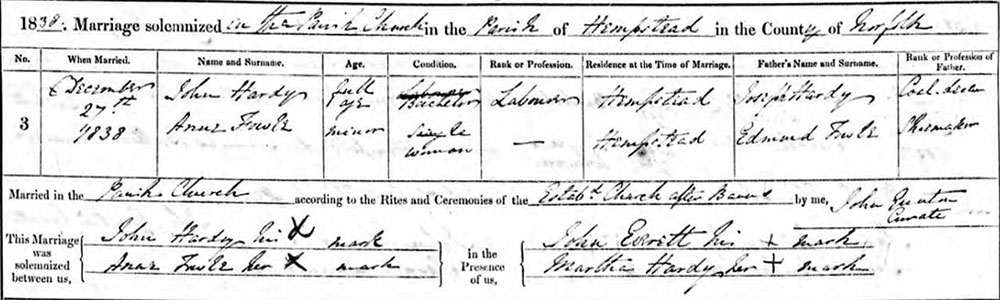 1838. Marriage solemnized in the Parish Church in the Parish of Hempstead in the County of Norfolk
No. When Married. Name and Surname. Age. Condition. Rank or Profession. Residence at the Time of Marriage. Father's Name and Surname. Rank or Profession of Father.
3 December 27th 1838 John Hardy full age Bachelor Labourer Hempstead Joseph Hardy
Anne Fowle minor Single woman — Hempstead Edmund Fowle Shoemaker
Married in the Parish Church according to the Rites and Ceremonies of the Estabd. Church after Banns by me, John Curate
This Marriage was solemnized between us, John Hardy his X mark in the Presence of us, John Everett his + mark
Anne Fowle her X mark Martha Hardy her + mark